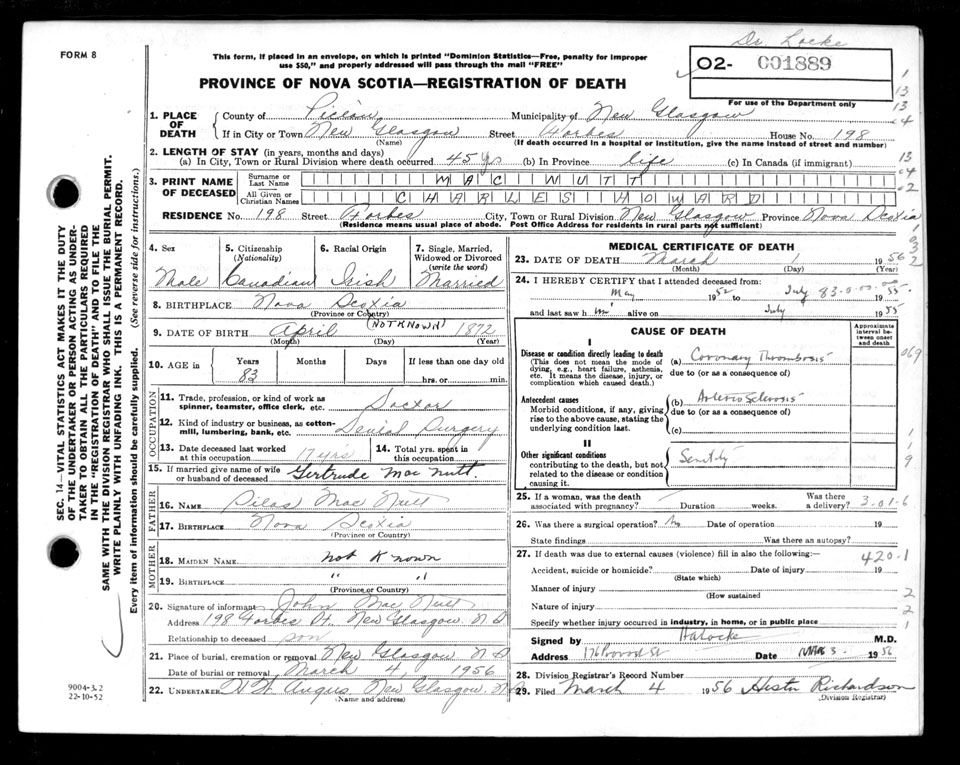 Dr. Locke
FORM 8
This form, if placed in an envelope, on which is printed "Dominion Statistics—Free, penalty for improper
use $50," and properly addressed will pass through the mail "FREE"
02- 001889
For use of the Department only
PROVINCE OF NOVA SCOTIA—REGISTRATION OF DEATH
1. PLACE OF DEATH
County of Pictou Municipality of New Glasgow
If in City or Town New Glasgow Street Forbes House No. 198
(Name) (If death occurred in a hospital or institution, give the name instead of street and number)
2. LENGTH OF STAY (in years, months and days)
(a) In City, Town or Rural Division where death occurred 45 yrs (b) In Province life (c) In Canada (if immigrant)
3. PRINT NAME OF DECEASED
Surname or Last Name MAC NUTT
All Given or Christian Names CHARLES HOWARD
RESIDENCE No. 198 Street Forbes City, Town or Rural Division New Glasgow Province Nova Scotia
(Residence means usual place of abode. Post Office Address for residents in rural parts not sufficient)
4. Sex Male
5. Citizenship (Nationality) Canadian
6. Racial Origin Irish
7. Single, Married, Widowed or Divorced (write the word) Married
8. BIRTHPLACE Nova Scotia
(Province or Country)
9. DATE OF BIRTH April (NOT KNOWN) 1872
(Month) (Day) (Year)
10. AGE in Years 83 Months Days If less than one day old
hrs. or min.
OCCUPATION
11. Trade, profession, or kind of work as
spinner, teamster, office clerk, etc. Doctor
12. Kind of industry or business, as cotton-
mill, lumbering, bank, etc. Dental Surgery
13. Date deceased last worked
at this occupation 17 yrs
14. Total yrs. spent in
this occupation
15. If married give name of wife
or husband of deceased Gertrude Mac Nutt
FATHER
16. NAME Silas Mac Nutt
17. BIRTHPLACE Nova Scotia
(Province or Country)
MOTHER
18. MAIDEN NAME not Known
19. BIRTHPLACE " "
(Province or Country)
20. Signature of informant John Mac Nutt
Address 198 Forbes St. New Glasgow. N S
Relationship to deceased son
21. Place of burial, cremation or removal New Glasgow N S
Date of burial or removal March 4, 1956
22. UNDERTAKER Angus, New Glasgow, N.S
(Name and address)
MEDICAL CERTIFICATE OF DEATH
23. DATE OF DEATH March 1 1956
(Month) (Day) (Year)
24. I HEREBY CERTIFY that I attended deceased from:
May 1952 to July 1955
and last saw him alive on July 1955
CAUSE OF DEATH
Approximate interval between onset and death
I
Disease or condition directly leading to death
(This does not mean the mode of
dying, e.g., heart failure, asthenia,
etc. It means the disease, injury, or
complication which caused death.)
(a) Coronary Thrombosis
due to (or as a consequence of)
Antecedent causes
Morbid conditions, if any, giving
rise to the above cause, stating the
underlying condition last.
(b) Arterio Sclerosis
due to (or as a consequence of)
(c)
II
Other significant conditions
contributing to the death, but not
related to the disease or condition
causing it.
Senility
25. If a woman, was the death
associated with pregnancy? Duration weeks. Was there
a delivery? 3-01-6
26. Was there a surgical operation? No Date of operation 19
State findings Was there an autopsy?
27. If death was due to external causes (violence) fill in also the following:— 420-1
Accident, suicide or homicide? Date of injury 19
(State which)
Manner of injury
(How sustained
Nature of injury
Specify whether injury occurred in industry, in home, or in public place
Signed by M.D.
Address 176 Provost St Date MAR 3 1956
28. Division Registrar's Record Number
29. Filed March 4 1956 Hester Richardson
(Division Registrar)
SEC. 14—VITAL STATISTICS ACT MAKES IT THE DUTY
OF THE UNDERTAKER OR PERSON ACTING AS UNDER-
TAKER TO OBTAIN ALL THE PARTICULARS REQUIRED
IN THE "REGISTRATION OF DEATH" AND TO FILE THE
SAME WITH THE DIVISION REGISTRAR WHO SHALL ISSUE THE BURIAL PERMIT.
WRITE PLAINLY WITH UNFADING INK. THIS IS A PERMANENT RECORD.
Every item of information should be carefully supplied. (See reverse side for instructions.)
9004-3.2
22-10-52